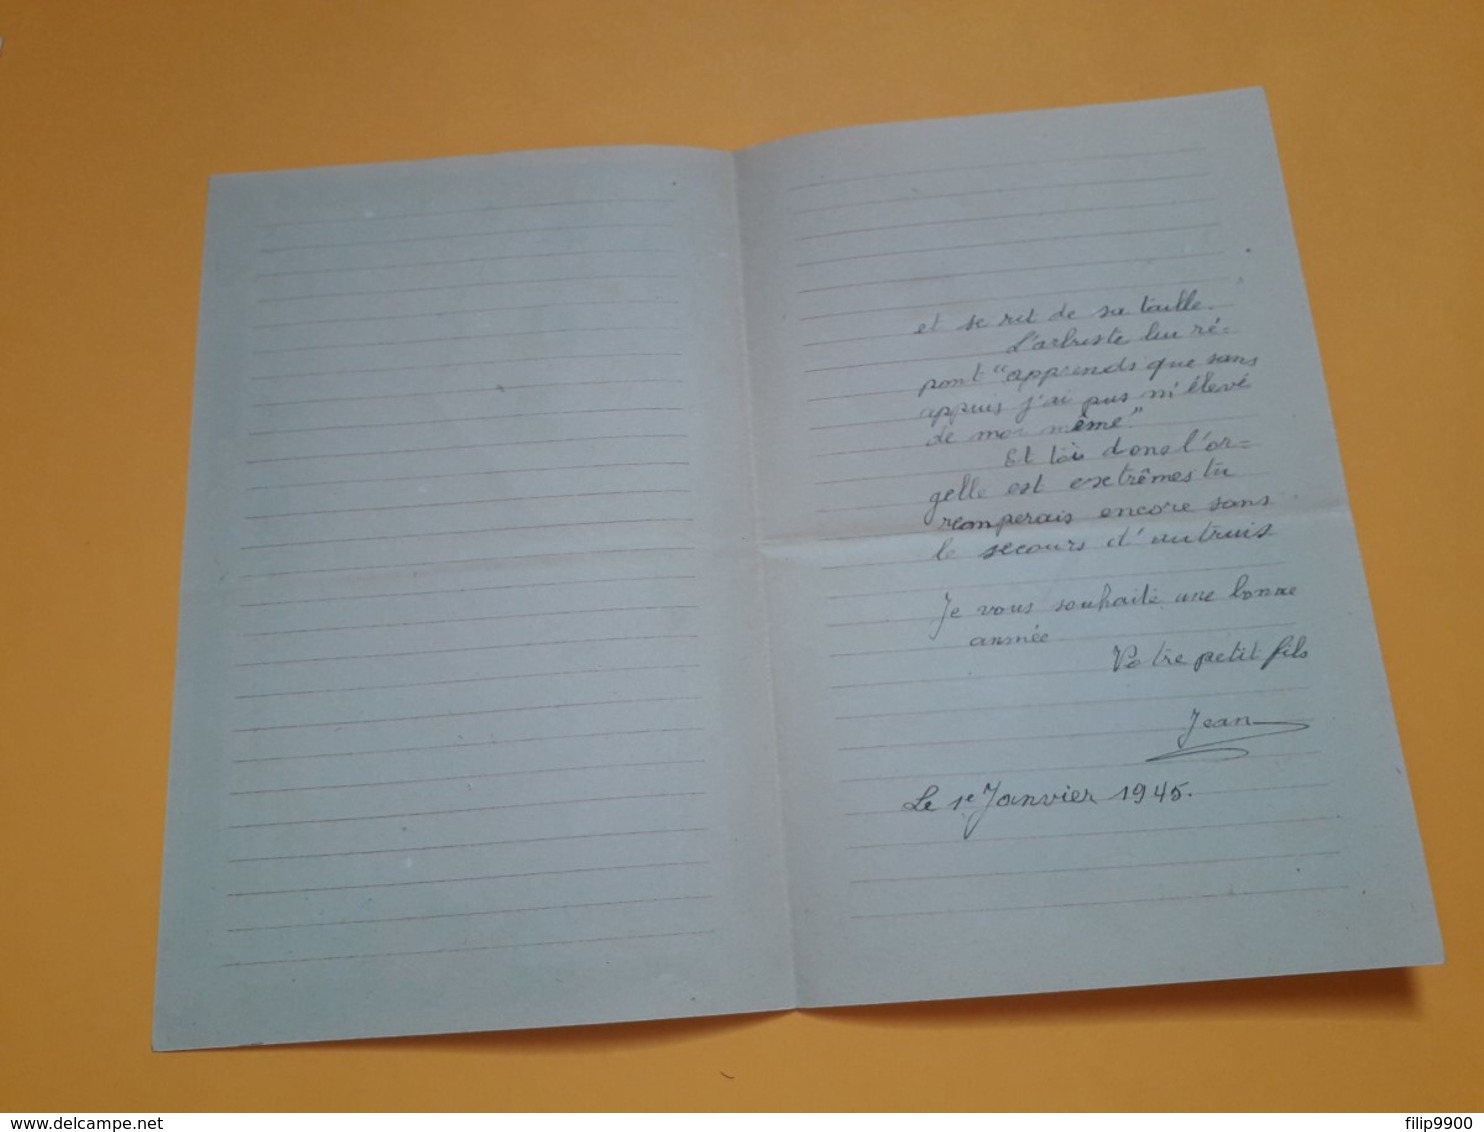 et se rit de sa taille.
L'arbuste lui ré-
pont "apprends que sans
appuis j'ai pus m'élevé
de moi même."
Et toi dons l'or-
gelle est extrêmes tu
remperais encore sans
le secours d'autruis
Je vous souhaite une bonne
année
Votre petit fils
Jean
Le 1e Janvier 1945.
www.delcampe.net
filip9900